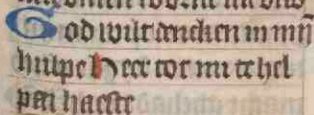 God wilt dencken in mijn
hulpe Heer tot mi te hel
pen haeste